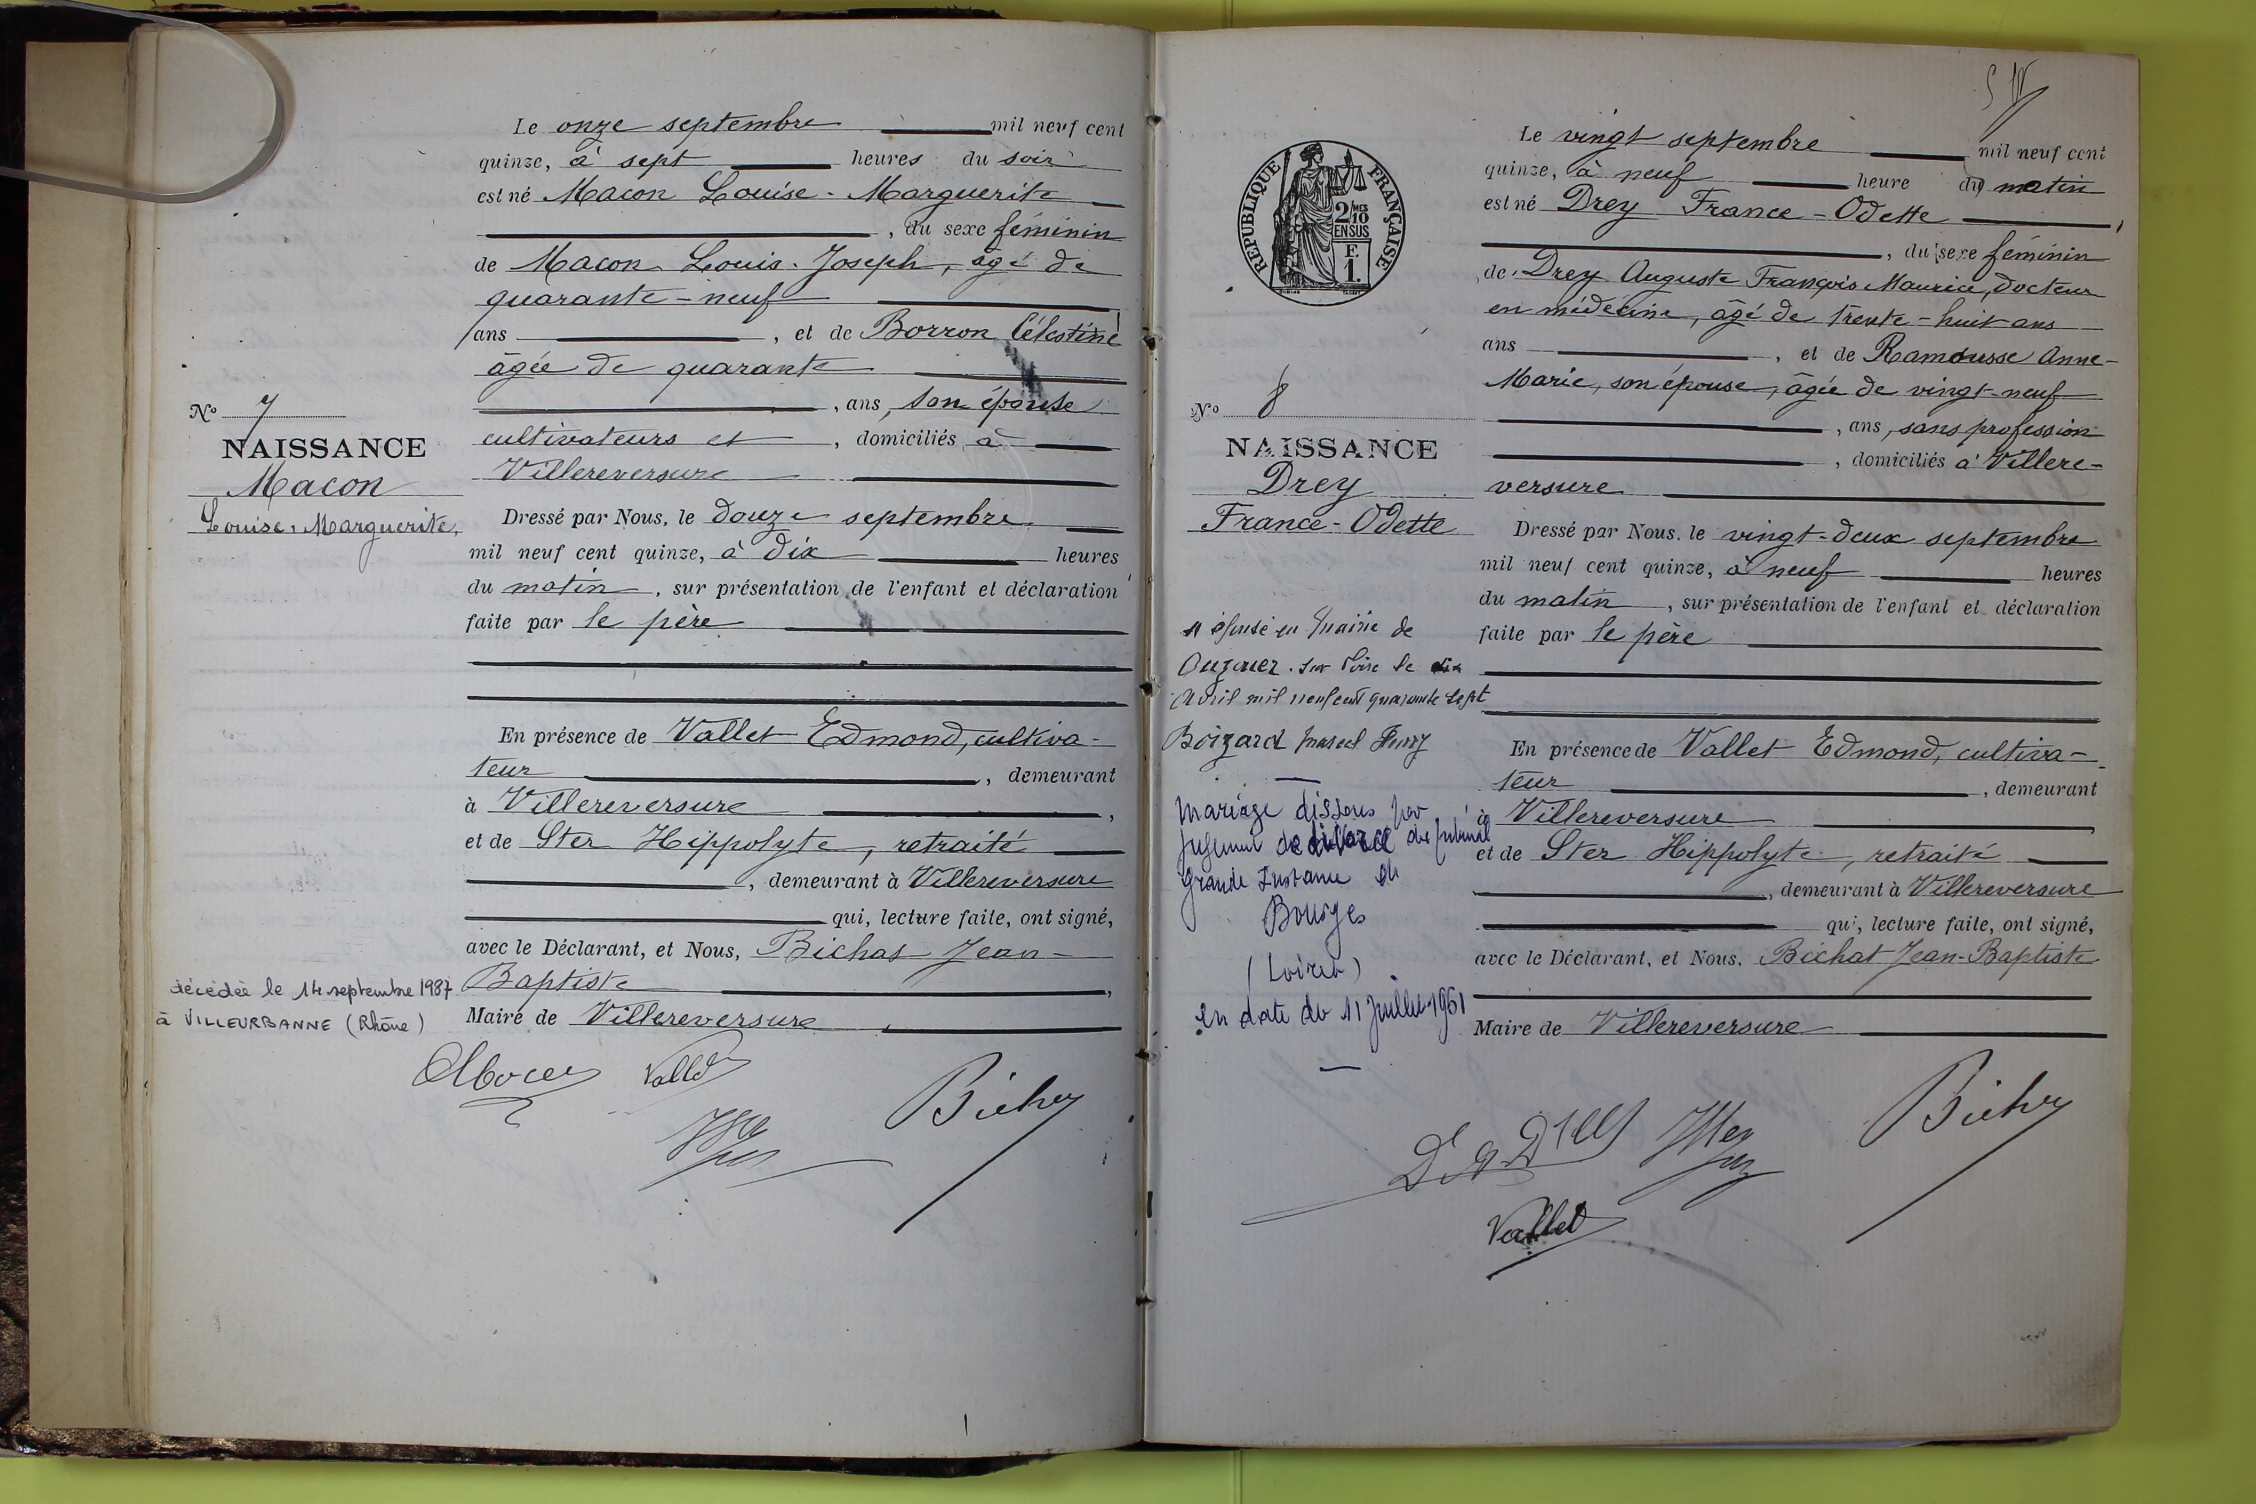 Le onze septembre mil neuf cent
quinze, à sept heures du soir
est né Macon Louise-Marguerite
, du sexe féminin
de Macon Louis-Joseph, âgé de
quarante-neuf
ans, et de Borron Célestine
âgée de quarante
, ans, son épouse
cultivateurs et, domiciliés à
Villereversure
No 7
NAISSANCE
Macon
Louise-Marguerite.
Dressé par Nous, le douze septembre
mil neuf cent quinze, à dix heures
du matin, sur présentation de l'enfant et déclaration
faite par le père
En présence de Vallet Edmond, cultiva-
teur, demeurant
à Villereversure,
et de Ster Hippolyte, retraité
, demeurant à Villereversure
qui, lecture faite, ont signé,
avec le Déclarant, et Nous, Bichat Jean-
Baptiste,
Maire de Villereversure
décédée le 14 septembre 1987
à VILLEURBANNE (Rhône)
Bichat
RÉPUBLIQUE FRANÇAISE
2/10
MES
EN SUS
F.
1.
Le vingt septembre mil neuf cent
quinze, à neuf heure du matin
est né Drey France-Odette,
, du sexe féminin
de Drey Auguste François Maurice, docteur
en médecine, âgé de trente-huit ans
ans, et de Ramousse Anne-
Marie, son épouse, âgée de vingt-neuf
, ans, sans profession
, domiciliés à Villere-
versure
No 8
NAISSANCE
Drey
France-Odette
Dressé par Nous, le vingt-deux septembre
mil neuf cent quinze, à neuf heures
du matin, sur présentation de l'enfant et déclaration
faite par le père
En présence de Vallet Edmond, cultiva-
teur, demeurant
à Villereversure
et de Ster Hippolyte, retraité
, demeurant à Villereversure
qui, lecture faite, ont signé,
avec le Déclarant, et Nous, Bichat Jean-Baptiste
Maire de Villereversure
a épousé en mairie de
sur Loire le dix
Avril mil neuf cent quarante sept
Boizard Marcel
mariage dissous par
jugement de divorce du tribunal
grande Instance de
Bourges
(Loiret)
en date du 11 Juillet 1961
Vallet
Bichat